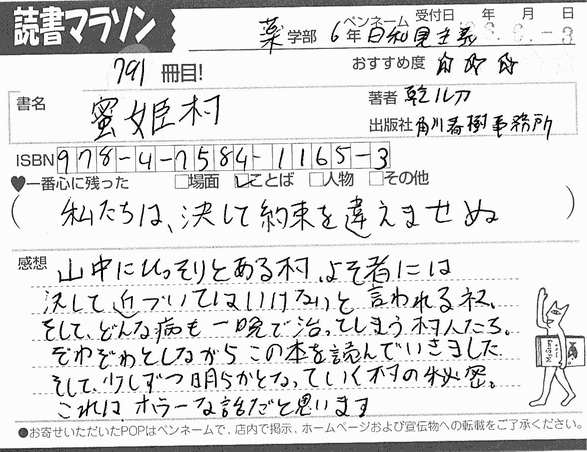 読書マラソン
薬学部 6年 ペンネーム 日和見主義 受付日 年 月 日
791冊目!
おすすめ度 ☆ ☆ ☆
書名 蜜姫村
著者 乾ルカ
出版社 角川春樹事務所
ISBN 978-4-7584-1165-3
♥一番心に残った □場面 ☑ことば □人物 □その他
(私たちは、決して約束を違えませぬ)
感想 山中にひっそりとある村、よそ者には
決して近づいてはいけないと言われるネス。
そして、どんな病も一晩で治ってしまう村人たち。
ぞわぞわとしながらこの本を読んでいきました
そして、少しずつ明らかとなっていく村の秘密。
これはホラーな話だと思います
●お寄せいただいたPOPはペンネームで、店内で掲示、ホームページおよび宣伝物への転載をご了承ください。